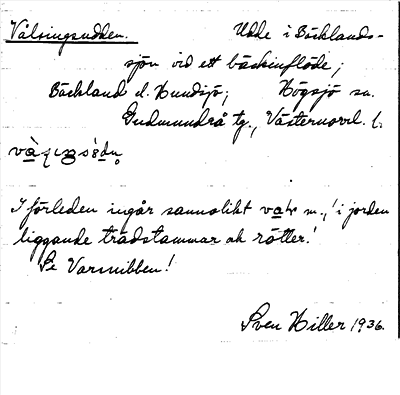 Välsingsudden. Udde i Böcklands-
sjön vid ett bäckinflöde;
Böckland o. Hundsjö; Högsjö sn.
Gudmundrå tg., Västernorrl. l.
I förleden ingår sannolikt m., 'i jorden
liggande trädstammar och rötter.'
Se Varsnibben!
Sven Hiller 1936.